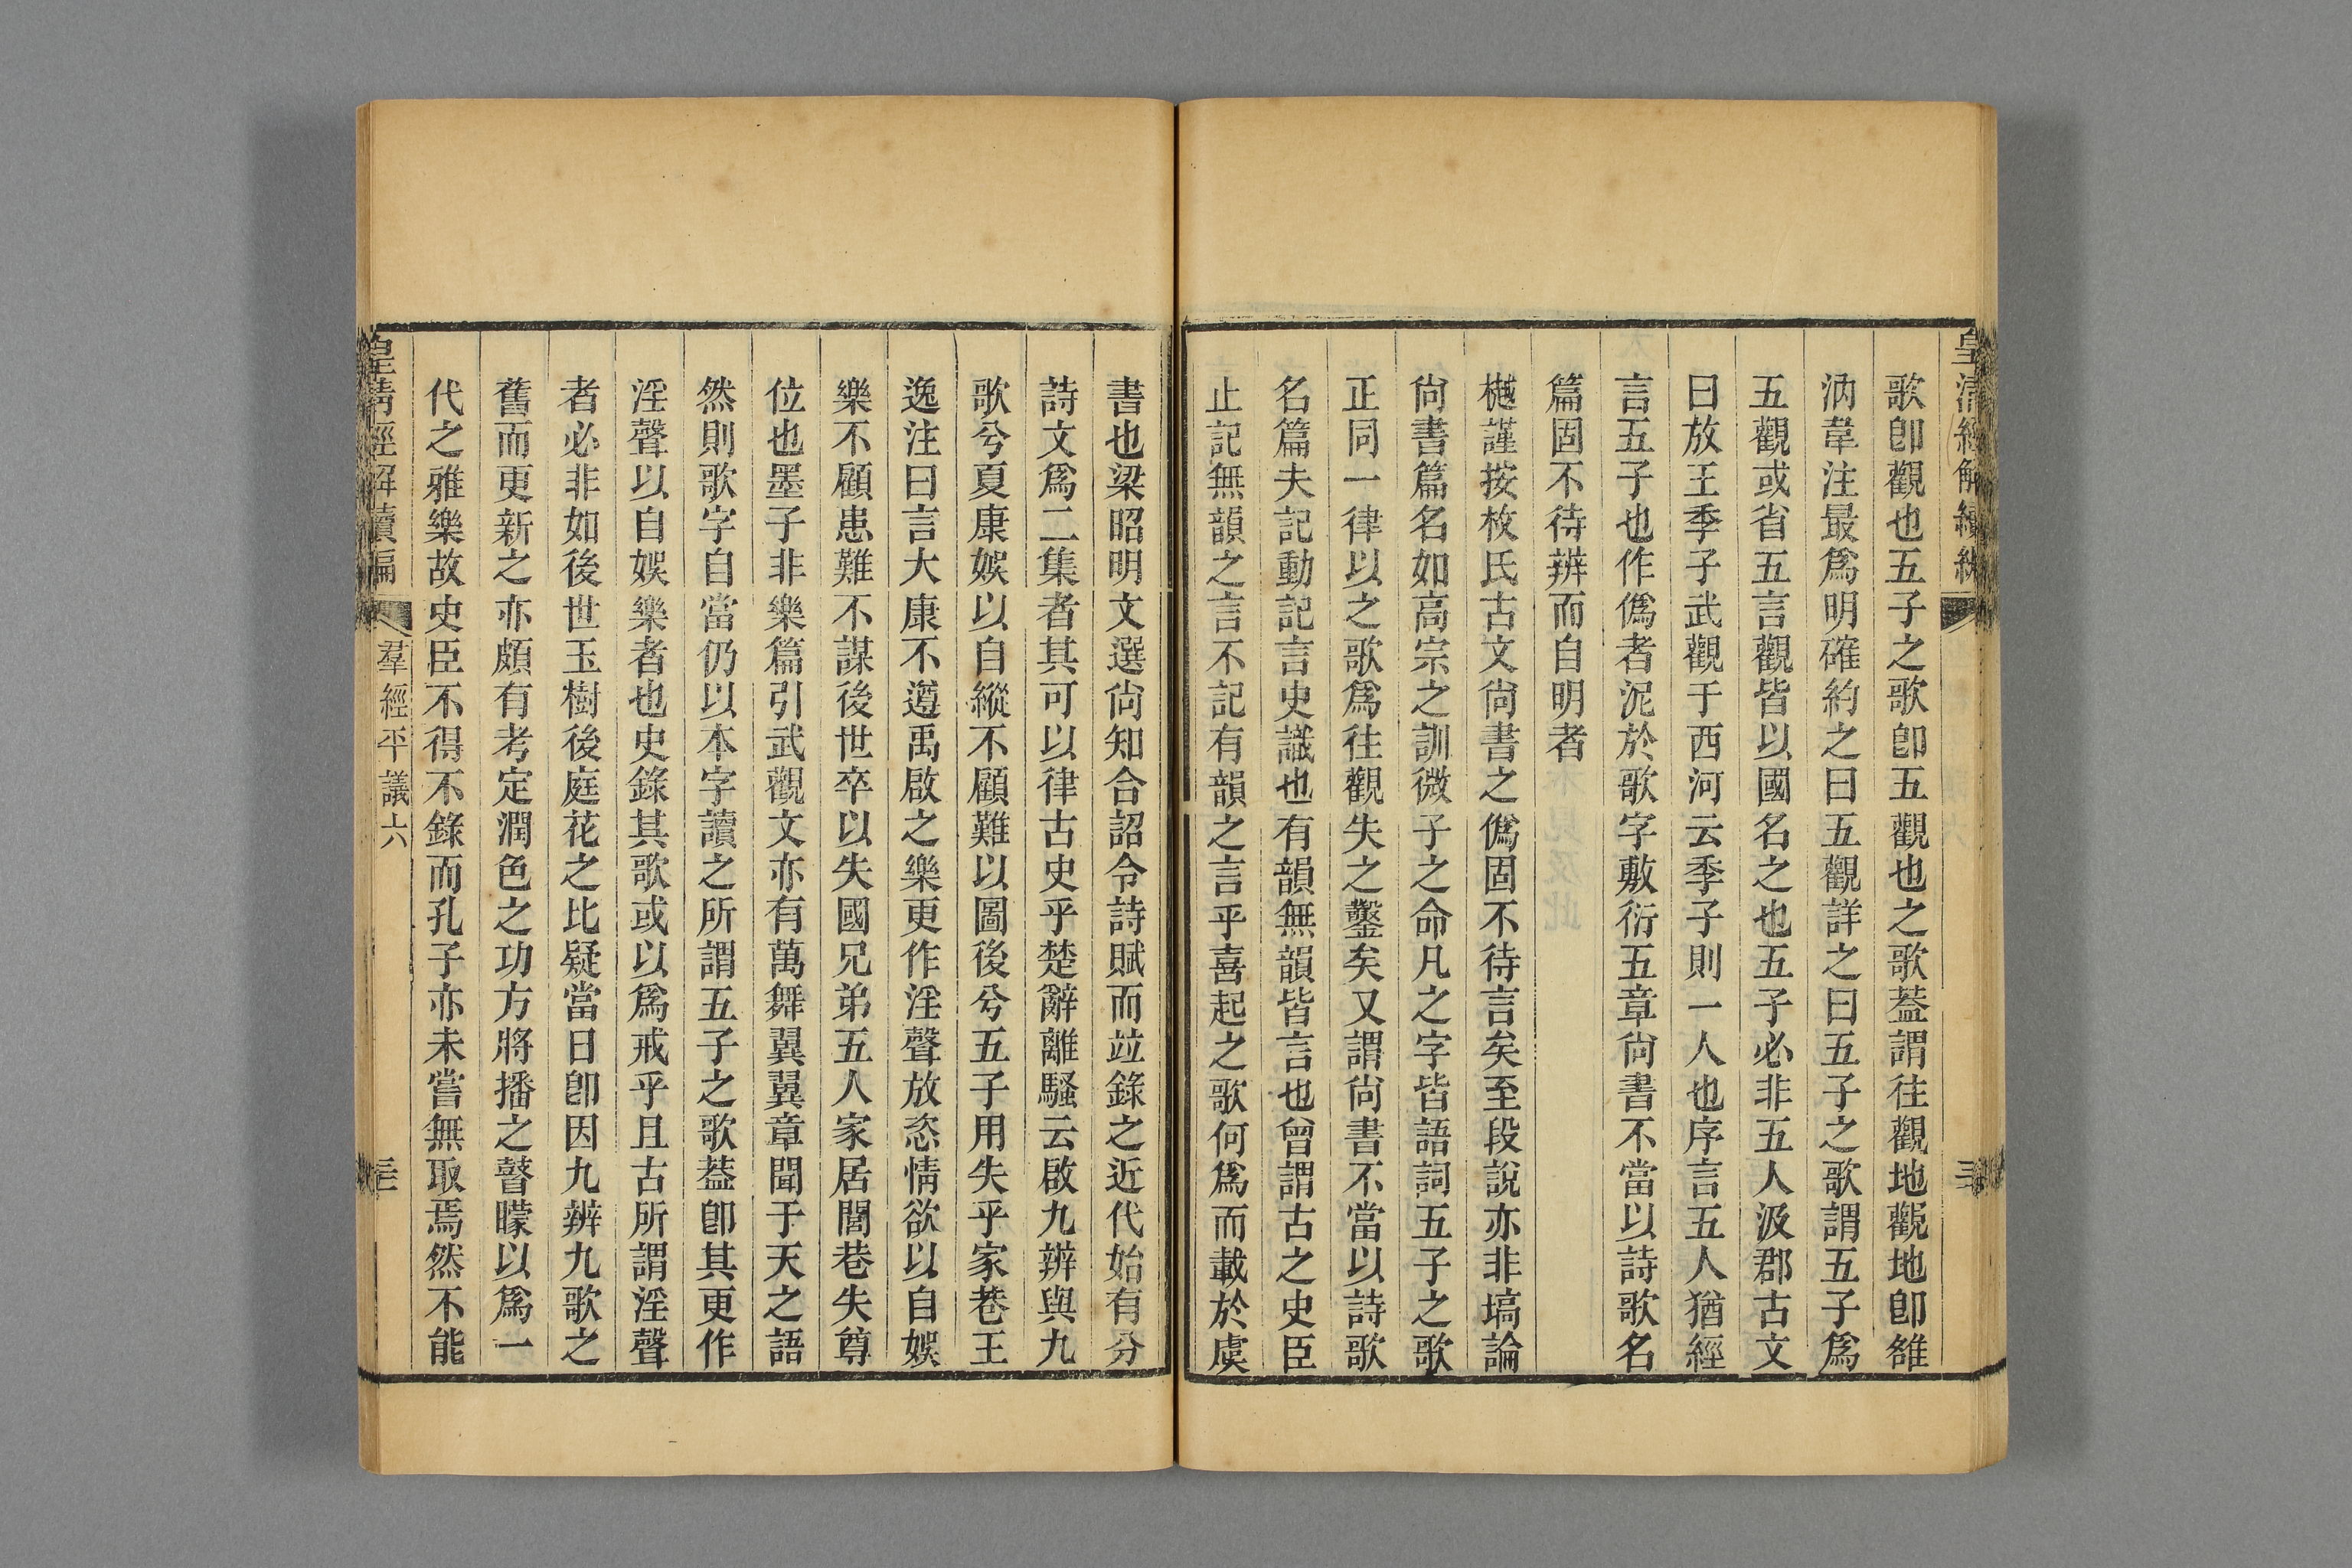 皇清經解續編
歌卽觀也五子之歌卽五觀也之歌葢謂往觀地觀地卽雒
汭韋注最爲明確約之曰五觀詳之曰五子之歌謂五子爲
五觀或省五言觀皆以國名之也五子必非五人汲郡古文
曰放王季子武觀于西河云季子則一人也序言五人猶經
言五子也作僞者泥於歌字敷衍五章尙書不當以詩歌名
篇固不待辨而自明者
樾謹按枚氏古文尙書之僞固不待言矣至段說亦非塙論
尙書篇名如高宗之訓微子之命凡之字皆語詞五子之歌
正同一律以之歌爲往觀失之鑿矣又謂尙書不當以詩歌
名篇夫記動記言史識也有韻無韻皆言也曾謂古之史臣
止記無韻之言不記有韻之言乎喜起之歌何爲而載於虞
書也梁昭明文選尙知合詔令詩賦而竝錄之近代始有分
詩文爲二集者其可以律古史乎楚辭離騷云啟九辨與九
歌兮夏康娛以自縱不顧難以圖後兮五子用失乎家巷王
逸注曰言大康不遵禹啟之樂更作淫聲放恣情欲以自娛
樂不顧患難不謀後世卒以失國兄弟五人家居閭巷失尊
位也墨子非樂篇引武觀文亦有萬舞翼翼章聞于天之語
然則歌字自當仍以本字讀之所謂五子之歌葢卽其更作
淫聲以自娛樂者也史錄其歌或以爲戒乎且古所謂淫聲
者必非如後世玉樹後庭花之比疑當日卽因九辨九歌之
舊而更新之亦頗有考定潤色之功方將播之瞽矇以爲一
代之雅樂故史臣不得不錄而孔子亦未嘗無取焉然不能
皇清經解續編
羣經平議六